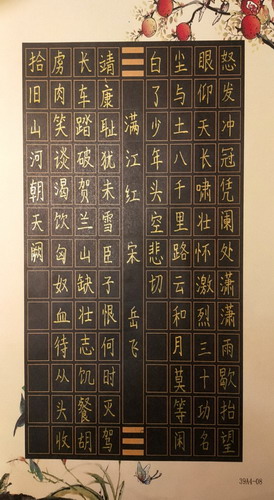 怒发冲冠凭阑处潇潇雨歇抬望
眼仰天长啸壮怀激烈三十功名
尘与土八千里路云和月莫等闲
白了少年头空悲切
满江红 宋 岳飞
靖康耻犹未雪臣子恨何时灭驾
长车踏破贺兰山缺壮志饥餐胡
虏肉笑谈渴饮匈奴血待从头收
拾旧山河朝天阙
39A4-08